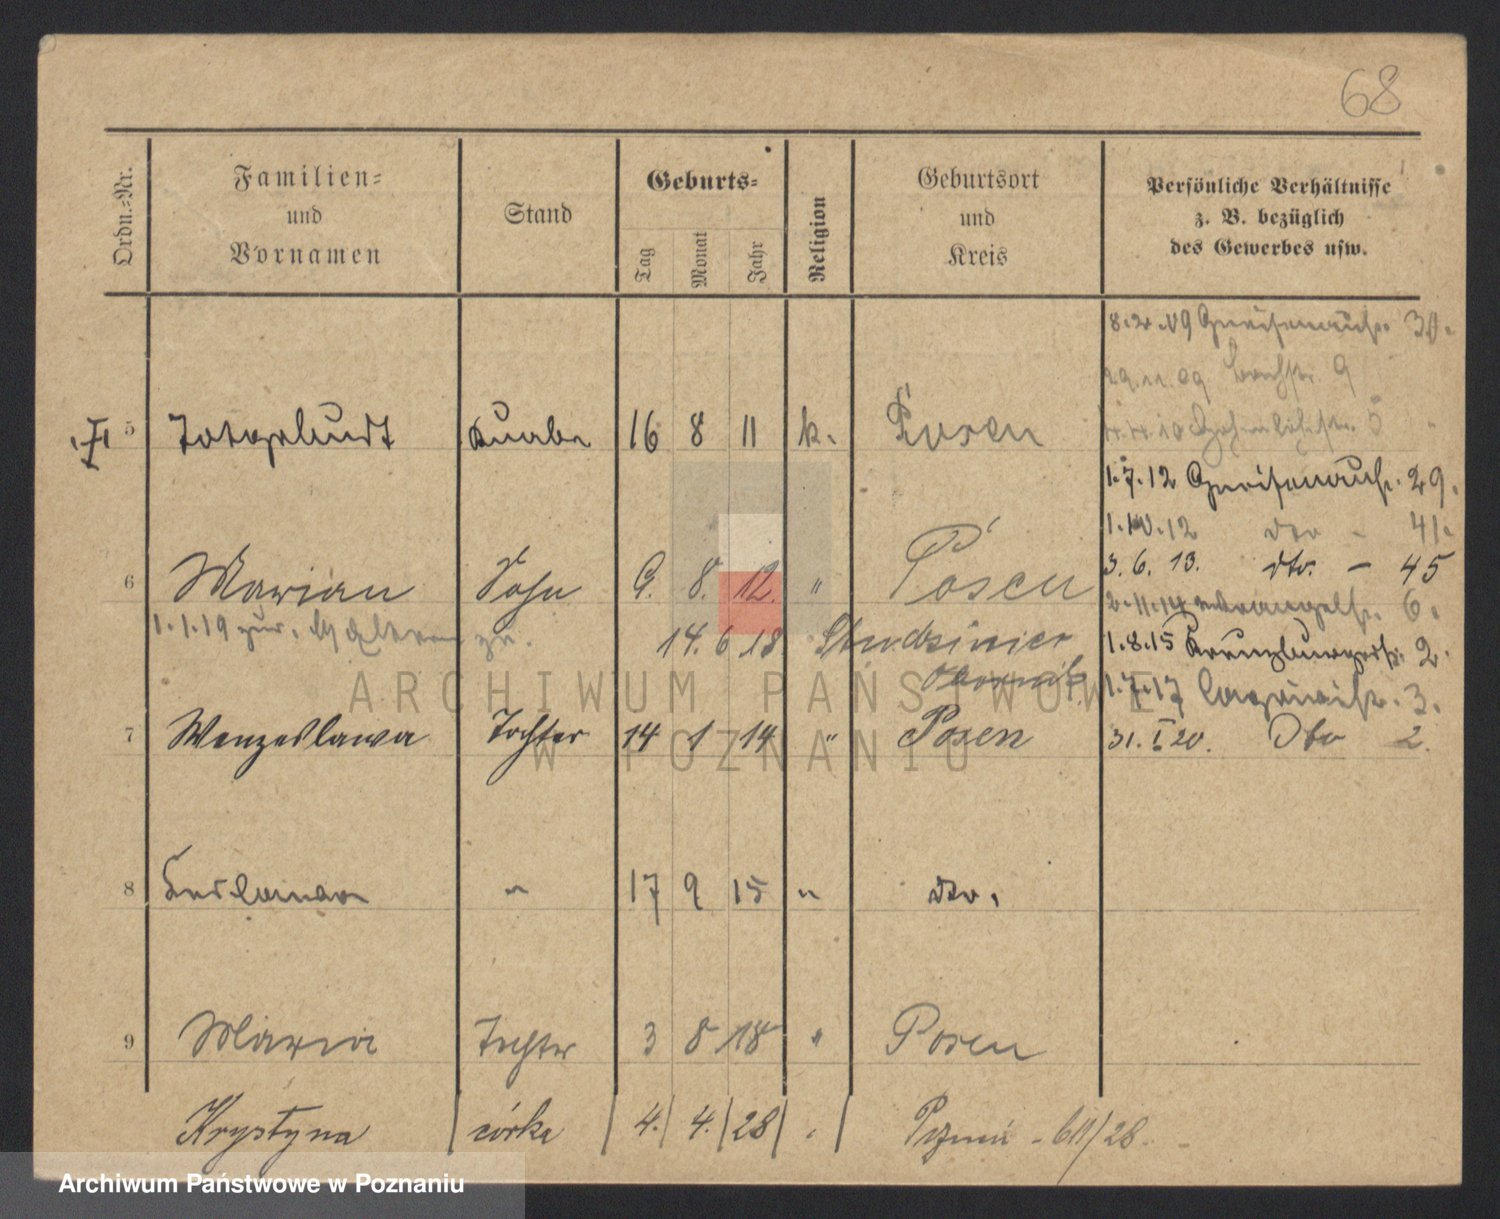 68
Ordn.=Nr.
Familien=
und
Vornamen
Stand
Geburts=
Tag
Monat
Jahr
Religion
Geburtsort
und
Kreis
Persönliche Verhältnisse
z. B. bezüglich
des Gewerbes usw.
8.2.09 Gneisenaustr. 30.
29.11.09 9
5
5 Totgeburt Knabe 16 8 11 k. Posen
1.7.12 Gneisenaustr. 29.
1.10.12 dto - 41.
3.6.13. dto. - 45
6 Marian Sohn 9. 8. 12. " Posen
2.11.14 Wrangelstr. 6.
1.1.19 zur. zu. 14. 6 18
1.8.15 Kreuzburgerstr. 2.
Obornik
1.7.17 3.
7 Wenzeslawa Tochter 14 1 14 " Posen
31.I.20. Dto 2.
8 " 17 9 15 " dto.
9 Maria Tochter 3 8 18 " Posen
Krystyna córka 4. 4. 28 Poznań
ARCHIWUM PAŃSTWOWE
W POZNANIU
Archiwum Państwowe w Poznaniu